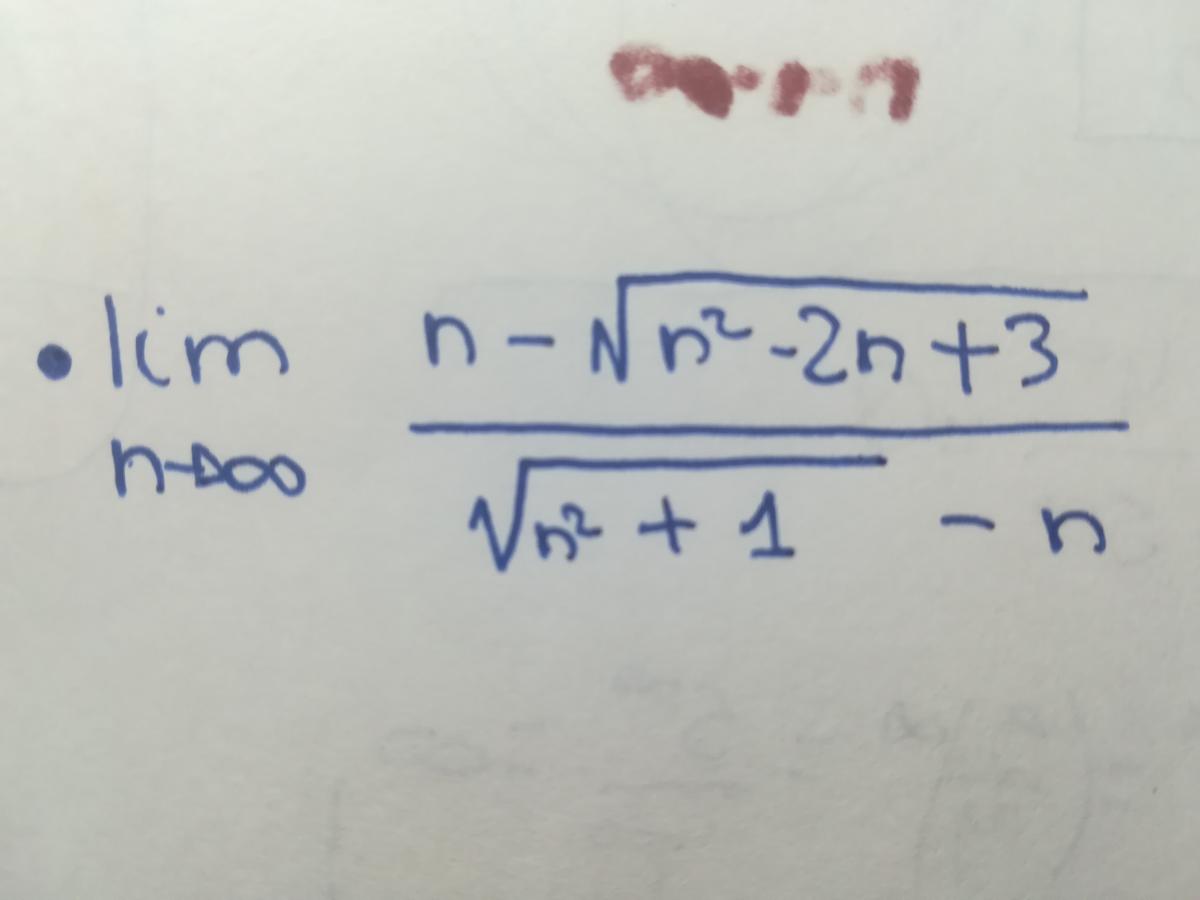 • lim n→∞ (n - √(n² - 2n + 3)) / (√(n² + 1) - n)